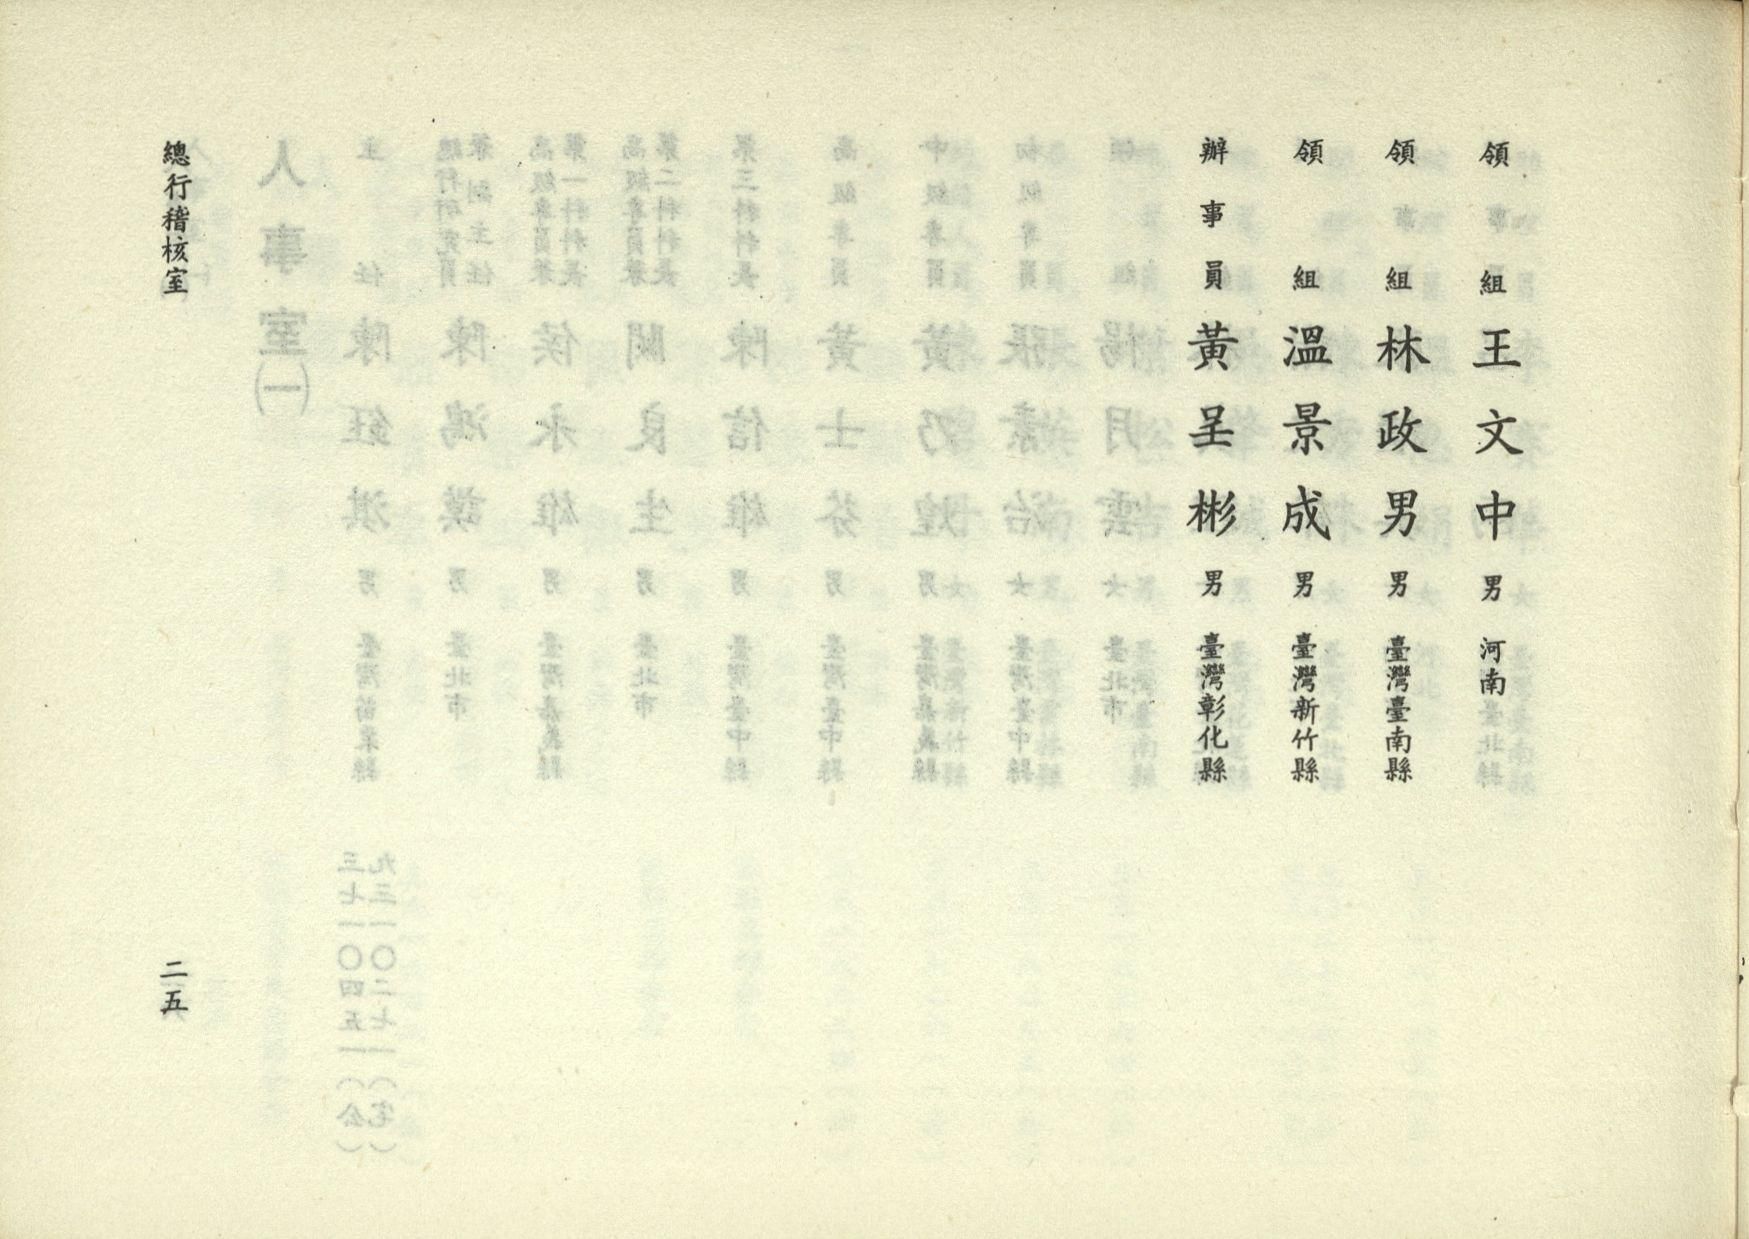 領組 王文中 男 河南
領組 林政男 男 臺灣臺南縣
領組 溫景成 男 臺灣新竹縣
辦事員 黃呈彬 男 臺灣彰化縣
總行稽核室
二五